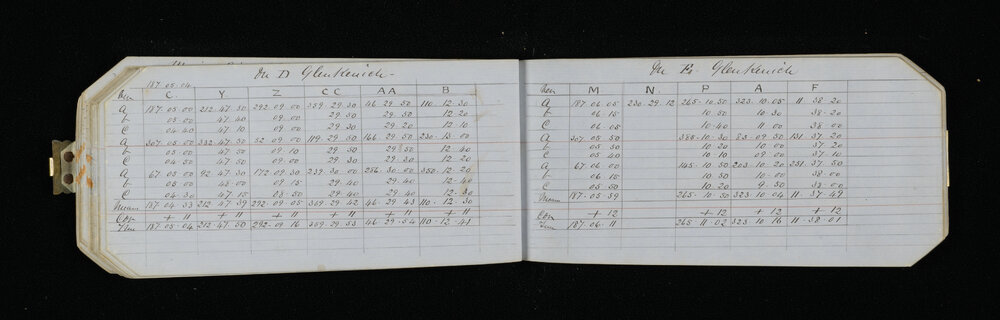 On D Glenkenich-
187.05.04
Ver C. Y Z CC AA B
A 187.05.00 212.47.30 292.09.00 359.29.30 46.29.50 110.12.30
b 05.00 47.40 09.00 29.30 29.30 12.20
C 04.40 47.10 09.00 29.30 29.20 12.10
A 307.05.00 332.47.50 52.09.00 119.29.50 166.29.50 230.13.00
b 05.00 47.50 09.10 29.50 29.50 12.40
C 04.50 47.50 09.00 29.30 29.30 12.20
A 67.05.00 92.47.30 172.09.30 239.30.00 286.30.00 350.12.20
b 05.00 48.00 09.15 29.40 29.40 12.40
C 04.30 47.15 08.50 29.40 29.40 12.30
Mean 187.04.53 212.47.39 292.09.05 359.29.42 46.29.43 110.12.30
Con + 11 + 11 + 11 + 11 + 11 + 11
187.05.04 212.47.50 292.09.16 359.29.53 46.29.54 110.12.41
On B. Glenkenich
Ver M N. P A F
A 187.06.05 230.29.12 265.10.50 323.10.05 11.38.20
b 06.15 10.50 10.30 38.20
C 06.05 10.40 11.00 38.00
A 307.05.50 385.10.30 83.09.50 131.37.20
b 05.50 10.20 10.00 37.20
C 05.40 10.10 09.00 37.10
A 67.06.00 145.10.50 203.10.20 251.37.50
b 06.15 10.50 10.00 38.00
C 05.50 10.20 9.50 38.00
Mean 187.05.59 265.10.50 323.10.04 11.37.49
Con + 12 + 12 + 12 + 12
187.06.11 265.11.02 323.10.16 11.38.01